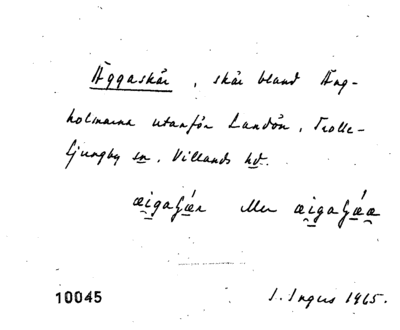 Äggaskär, skär bland Äng-
holmarna utanför Landön, Trolle-
Ljungby sn, Villands hd.
æigaʃǽr eller æigaʃǽæ
10045
I. Ingers 1965.